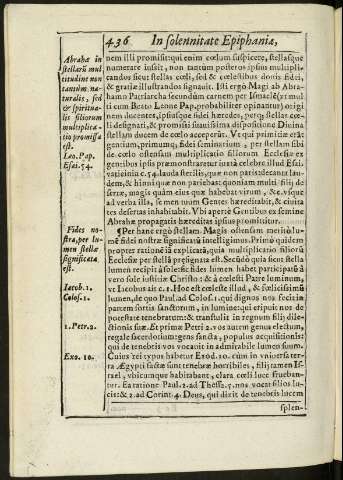 436 In solennitate Epiphaniæ,
nem illi promisit: qui enim cœlum suspicere, stellasque
numerare iussit, non tantum posteros ipsius multipli-
candos sicut stellas cœli, sed & cœlestibus donis fidei,
& gratiæ illustrandos significauit. Isti ergo Magi ab Abra-
hamo Patriarcha secundùm carnem per Ismaelē (vt mul
ti cum Beato Leone Pap. probabiliter opinātur) origi
nem ducentes, ipsiusque fidei hæredes, per stellas cœ-
li designati, & promissi suauissima dispositione Diuina
stellam ducem de cœlo acceperūt. Vt qui primitiæ erāt
gentium, primumque fidei seminarium, per stellam sibi
de cœlo ostensam multiplicatio filiorum Ecclesiæ ex
gentibus ipsis præmonstraretur iuxta celebre illud Esai.
vaticiniū ca. 54. lauda sterilis, quæ non paris: decanta lau-
dem, & hinni quæ non pariebas: quoniam multi filij de
sertæ, magis quàm eius quæ habebat virum, &c. vsque
ad verba illa, semen tuum Gentes hæreditabit, & ciuita
tes desertas inhabitabit. Vbi apertè Gentibus ex semine
Abrahæ propagatis hæreditas ipsius promittitur.
¶Per hanc ergò stellam Magis ostensam meritò lu-
mē fidei nostræ significatū intelligimus. Primò quidem
propter rationē iā explicatā, quia multiplicatio filiorū
Ecclesiæ per stellā præsignata est. Secūdò quia sicut stella
lumen recipit à sole: sic fides lumen habet participatū à
vero sole iustitiæ Christo: & à cœlesti Patre luminum,
vt Iacobus ait c. 1. Hoc est cœleste illud, & fœlicissimū
lumen, de quo Paul. ad Colos. 1. qui dignos nos fecit in
partem sortis sanctorum, in lumine: qui eripuit nos de
potestate tenebrarum: & transtulit in regnum filij dile-
ctionis suæ. Et primæ Petri 2. vos autem genus electum,
regale sacerdotium: gens sancta, populus acquisitionis:
qui de tenebris vos vocauit in admirabile lumen suum.
Cuius rei typus habetur Exod. 10. cum in vniuersa ter-
ra Ægypti factæ sunt tenebræ horribiles, filij tamen Is-
rael, vbicumque habitabant, clara cœli luce frueban-
tur. Ea ratione Paul. 2. ad Thessa. 5. nos vocat filios lu-
cis: & 2. ad Corint. 4. Deus, qui dixit de tenebris lucem
splen-
Abrahæ in
stellarū mul
titudine non
tantum na-
turalis, sed
& spiritua-
lis filiorum
multiplica-
tio promissa
est.
Leo. Pap.
Esai. 54.
Fides no-
stra, per lu-
men stellæ
significata
est.
Iacob. 1.
Colos. 1.
1. Petr. 2.
Exo. 10.